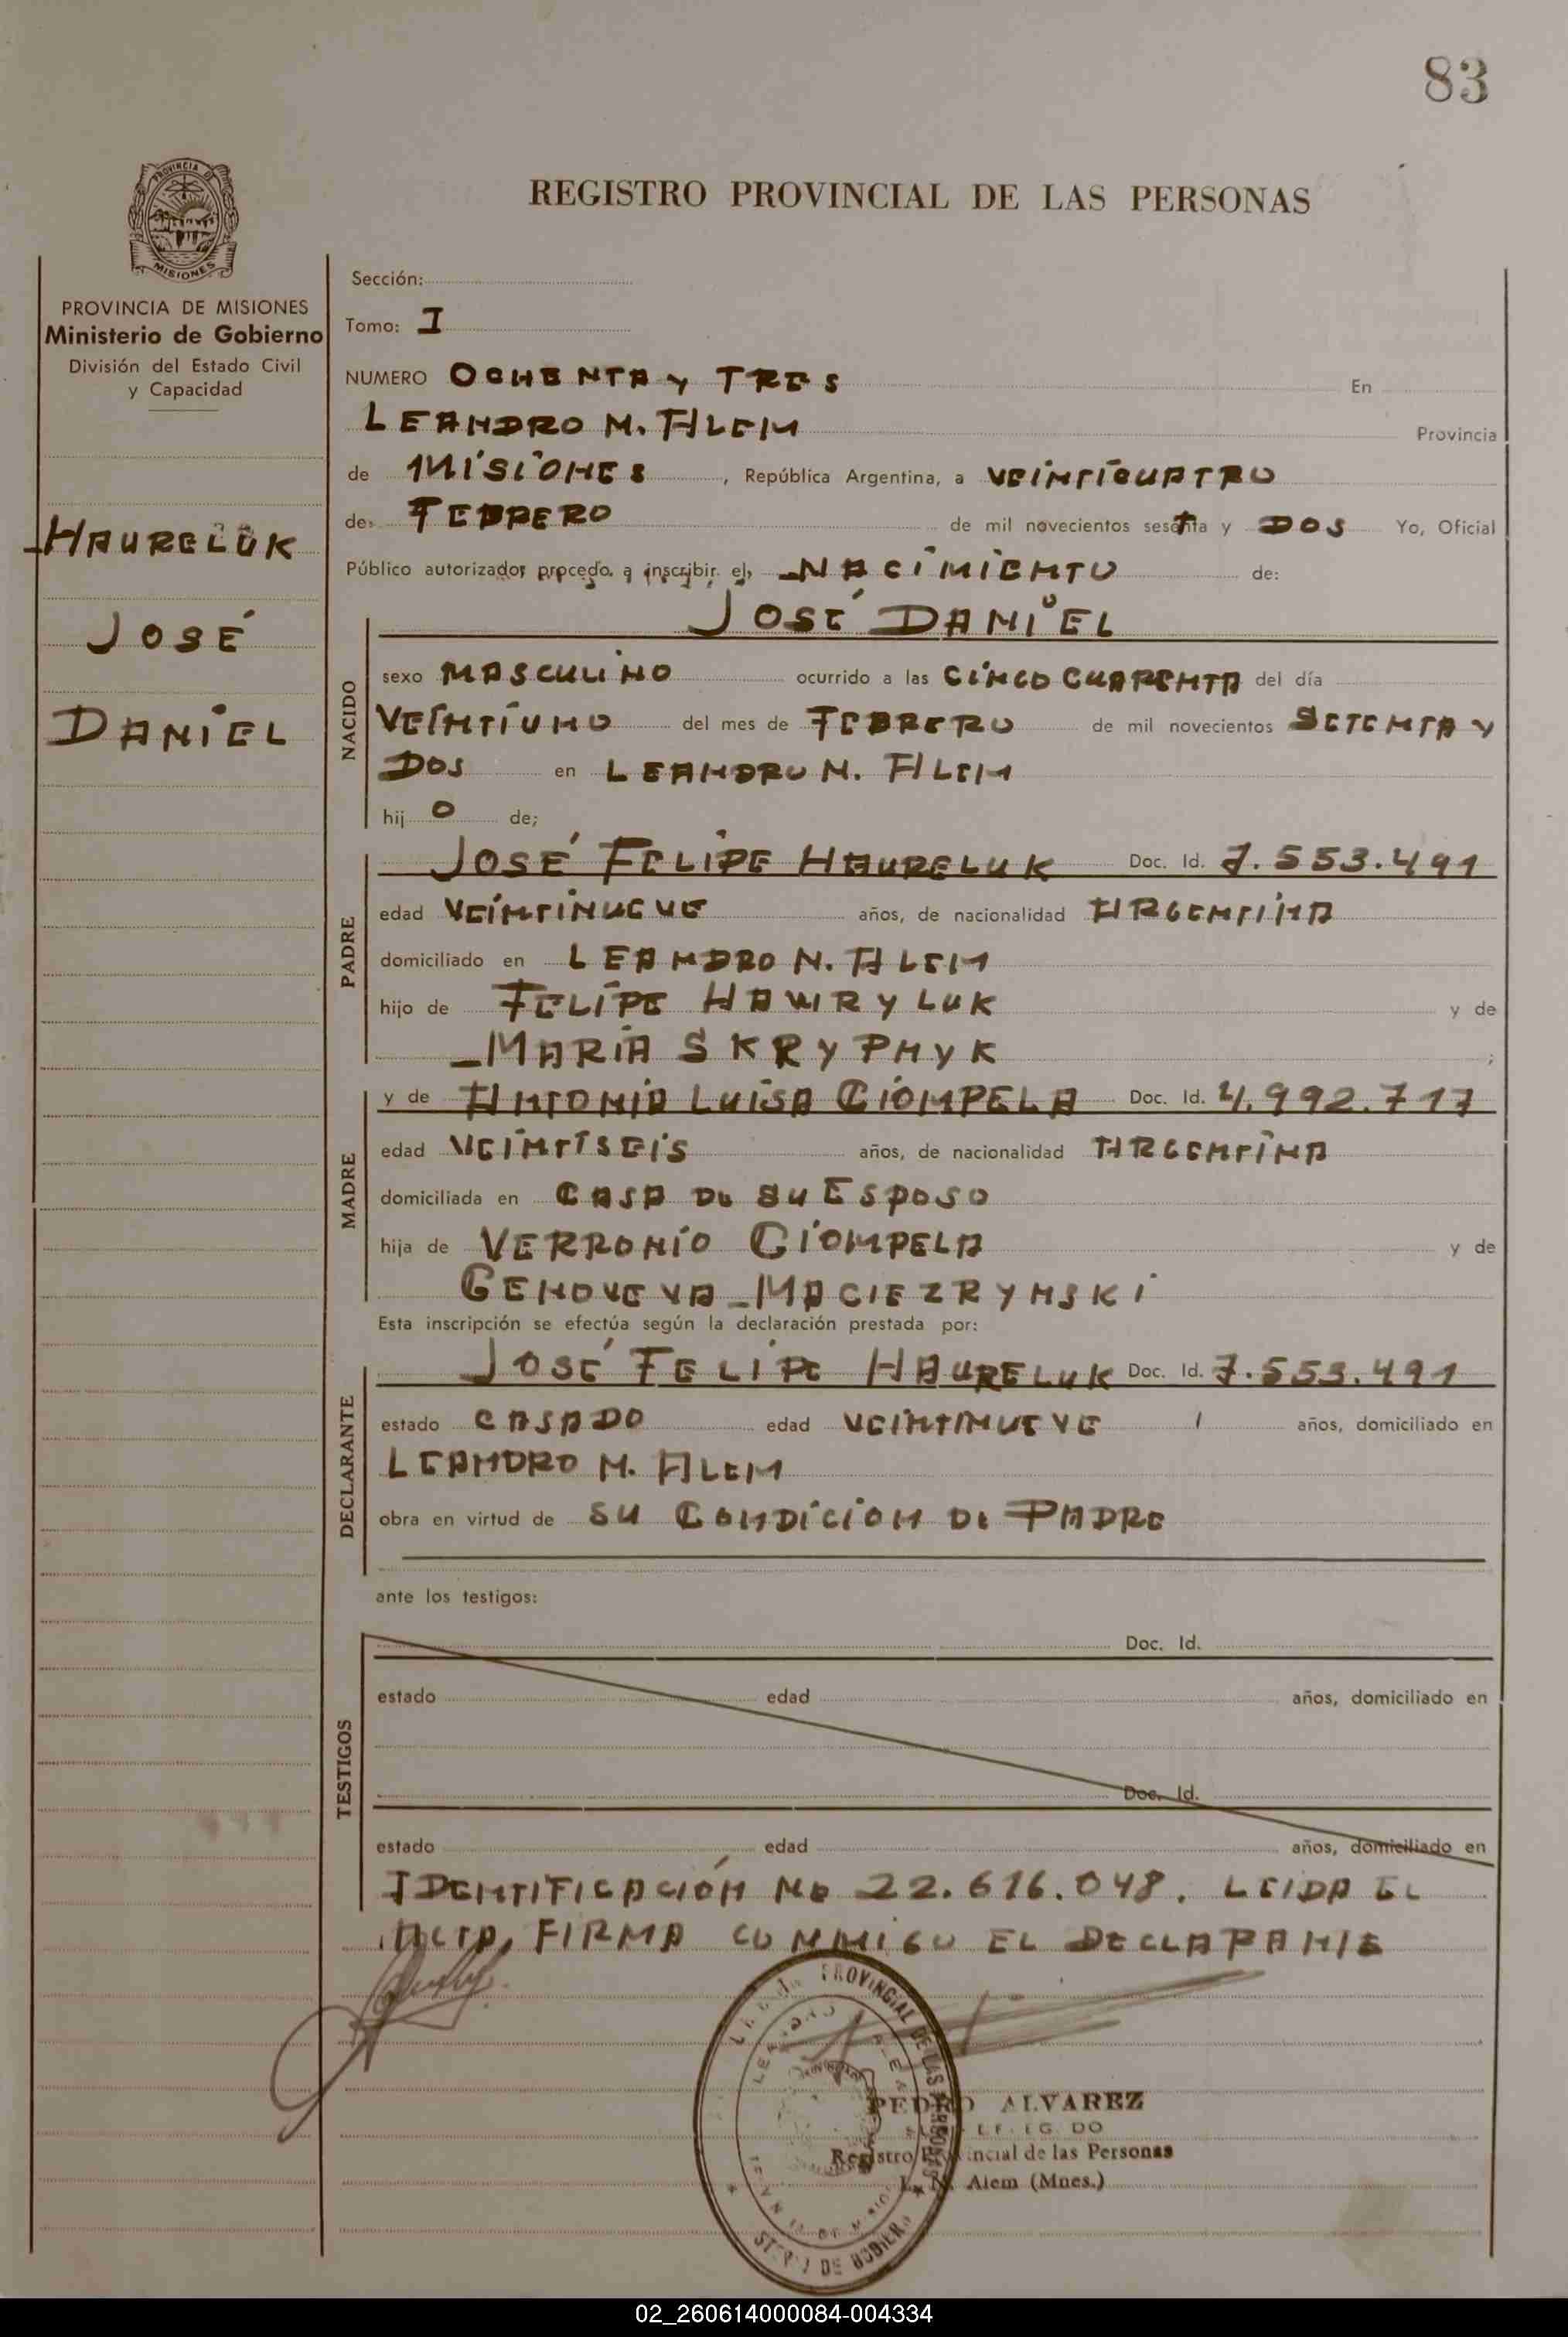 83
REGISTRO PROVINCIAL DE LAS PERSONAS
PROVINCIA DE
MISIONES
PROVINCIA DE MISIONES
Ministerio de Gobierno
División del Estado Civil
y Capacidad
HAURELUK
JOSÉ
DANIEL
Sección:
Tomo: I
NUMERO OCHENTA y TRES En
LEANDRO N. ALEM Provincia
de MISIONES, República Argentina, a VEINTICUATRO
de FEBRERO de mil novecientos setenta y DOS Yo, Oficial
Público autorizado, procedo a inscribir el NACIMIENTO de:
JOSÉ DANIEL
NACIDO
sexo MASCULINO ocurrido a las CINCO CUARENTA del día
VEINTIUNO del mes de FEBRERO de mil novecientos SETENTA Y
DOS en LEANDRO N. ALEM
hij O de;
PADRE
JOSÉ FELIPE HAURELUK Doc. Id. 7.553.491
edad VEINTINUEVE años, de nacionalidad ARGENTINA
domiciliado en LEANDRO N. ALEM
hijo de FELIPE HAWRYLUK y de
MARIA SKRYPNYK ;
MADRE
y de ANTONIA LUISA CIOMPELA Doc. Id. 4.992.717
edad VEINTISEIS años, de nacionalidad ARGENTINA
domiciliada en CASA DE SU ESPOSO
hija de VERRONIO CIOMPELA y de
GENOVEVA MACIEZRYNSKI
Esta inscripción se efectúa según la declaración prestada por:
DECLARANTE
JOSÉ FELIPE HAURELUK Doc. Id. 7.553.491
estado CASADO edad VEINTINUEVE años, domiciliado en
LEANDRO N. ALEM
obra en virtud de SU CONDICION DE PADRE
ante los testigos:
TESTIGOS
Doc. Id.
estado edad años, domiciliado en
Doc. Id.
estado edad años, domiciliado en
IDENTIFICACIÓN No 22.616.048. LEIDA EL
ACTA, FIRMA CONMIGO EL DECLARANTE
PROVINCIAL DE LAS PERSONAS
LEANDRO N. ALEM
PEDRO ALVAREZ
Registro Provincial de las Personas
L. N. Alem (Mnes.)
DE GOBIERNO
02_260614000084-004334